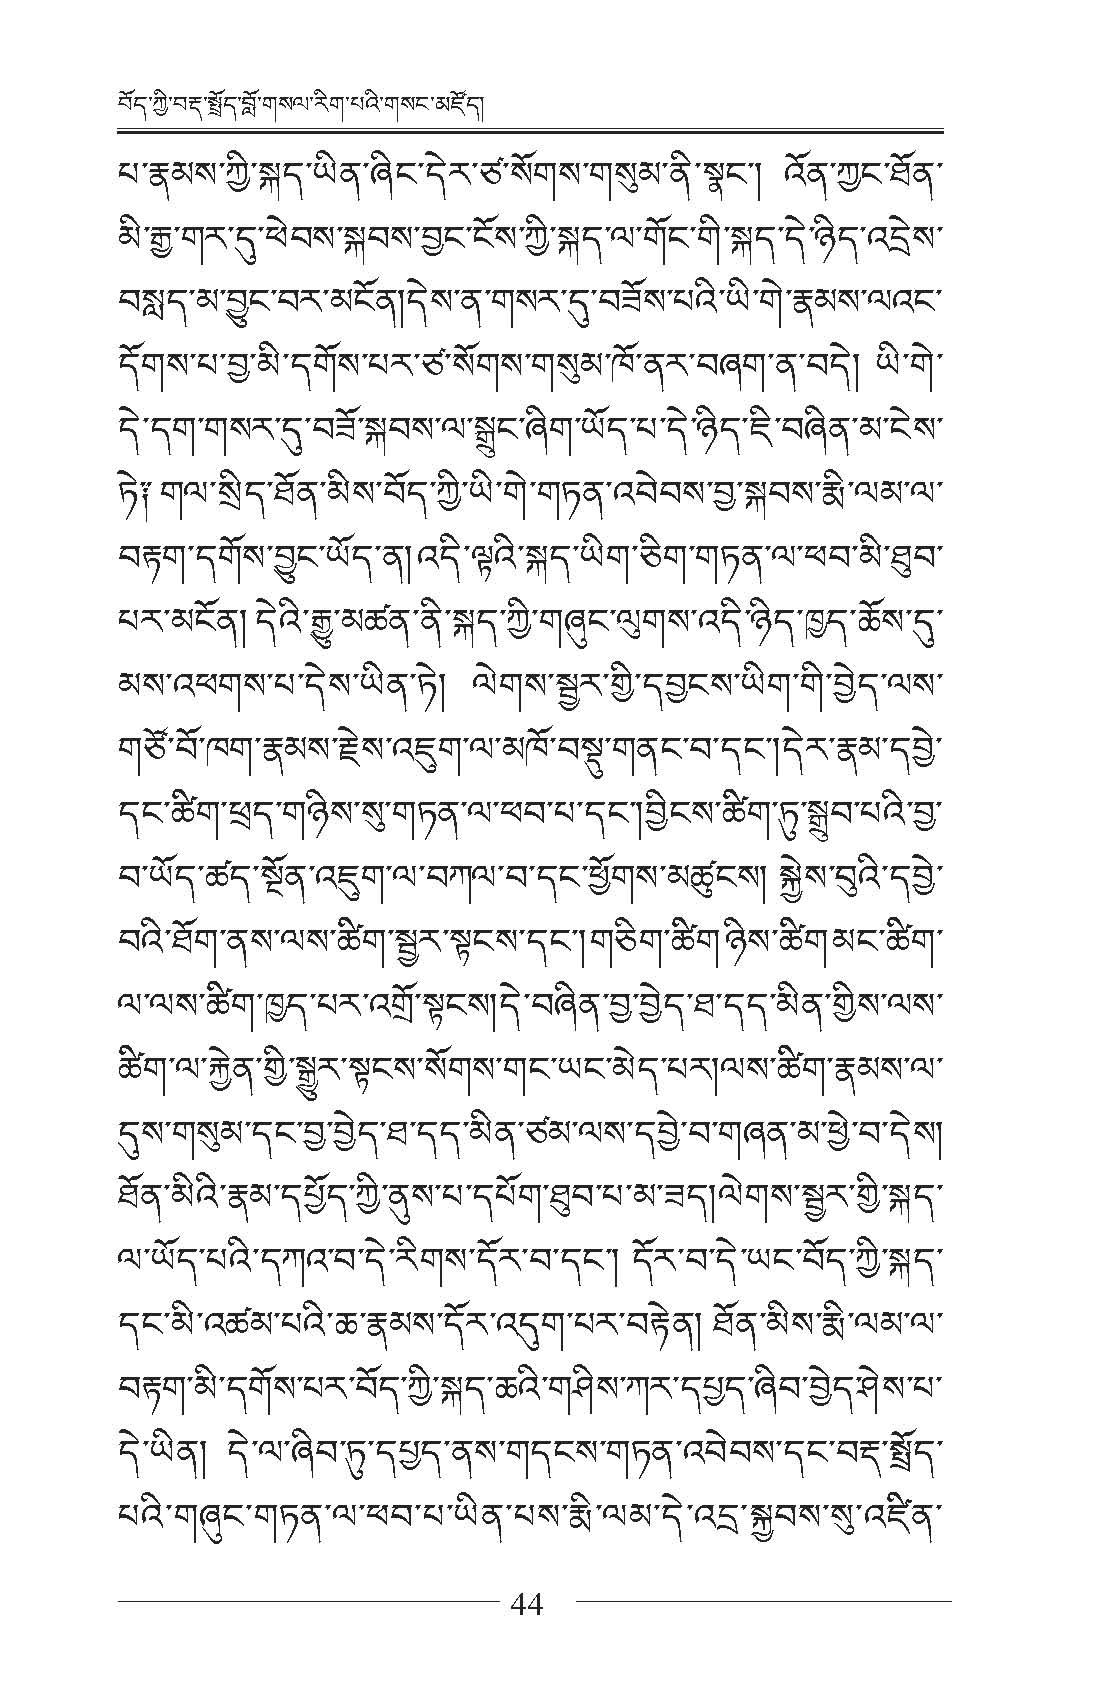 བོད་ཀྱི་བརྡ་སྤྲོད་བློ་གསལ་རིག་པའི་གསང་མཛོད།
པ་རྣམས་ཀྱི་སྐད་ཡིན་ཞིང་དེར་ཙ་སོགས་གསུམ་ནི་སྣང་། འོན་ཀྱང་ཐོན་
མི་རྒྱ་གར་དུ་ཕེབས་སྐབས་བྱང་ངོས་ཀྱི་སྐད་ལ་གོང་གི་སྐད་དེ་ཉིད་འདྲེས་
བསླད་མ་བྱུང་བར་མངོན།དེས་ན་གསར་དུ་བཟོས་པའི་ཡི་གེ་རྣམས་ལའང་
དོགས་པ་བྱ་མི་དགོས་པར་ཙ་སོགས་གསུམ་ཁོ་ནར་བཞག་ན་བདེ། ཡི་གེ་
དེ་དག་གསར་དུ་བཟོ་སྐབས་ལ་སྒྲུང་ཞིག་ཡོད་པ་དེ་ཉིད་ཇི་བཞིན་མ་ངེས་
ཏེ༑ གལ་སྲིད་ཐོན་མིས་བོད་ཀྱི་ཡི་གེ་གཏན་འབེབས་བྱ་སྐབས་རྨི་ལམ་ལ་
བརྟག་དགོས་བྱུང་ཡོད་ན། འདི་ལྟའི་སྐད་ཡིག་ཅིག་གཏན་ལ་ཕབ་མི་ཐུབ་
པར་མངོན། དེའི་རྒྱུ་མཚན་ནི་སྐད་ཀྱི་གཞུང་ལུགས་འདི་ཉིད་ཁྱད་ཆོས་དུ་
མས་འཕགས་པ་དེས་ཡིན་ཏེ། ལེགས་སྦྱར་གྱི་དབྱངས་ཡིག་གི་བྱེད་ལས་
གཙོ་བོ་ཁག་རྣམས་རྗེས་འཇུག་ལ་མཁོ་བསྡུ་གནང་བ་དང་།དེར་རྣམ་དབྱེ་
དང་ཚིག་ཕྲད་གཉིས་སུ་གཏན་ལ་ཕབ་པ་དང་།བྱིངས་ཚིག་ཏུ་སྒྲུབ་པའི་བྱ་
བ་ཡོད་ཚད་སྔོན་འཇུག་ལ་བཀལ་བ་དང་ཕྱོགས་མཚུངས། སྐྱེས་བུའི་དབྱེ་
བའི་ཐོག་ནས་ལས་ཚིག་སྦྱར་སྟངས་དང་།གཅིག་ཚིག ཉིས་ཚིག མང་ཚིག་
ལ་ལས་ཚིག་ཁྱད་པར་འགྲོ་སྟངས།དེ་བཞིན་བྱ་བྱེད་ཐ་དད་མིན་གྱིས་ལས་
ཚིག་ལ་རྐྱེན་གྱི་སྒྱུར་སྟངས་སོགས་གང་ཡང་མེད་པར།ལས་ཚིག་རྣམས་ལ་
དུས་གསུམ་དང་བྱ་བྱེད་ཐ་དད་མིན་ཙམ་ལས་དབྱེ་བ་གཞན་མ་ཕྱེ་བ་དེས།
ཐོན་མིའི་རྣམ་དཔྱོད་ཀྱི་ནུས་པ་དཔོག་ཐུབ་པ་མ་ཟད།ལེགས་སྦྱར་གྱི་སྐད་
ལ་ཡོད་པའི་དཀའ་བ་དེ་རིགས་དོར་བ་དང་། དོར་བ་དེ་ཡང་བོད་ཀྱི་སྐད་
དང་མི་འཚམ་པའི་ཆ་རྣམས་དོར་འདུག་པར་བརྟེན། ཐོན་མིས་རྨི་ལམ་ལ་
བརྟག་མི་དགོས་པར་བོད་ཀྱི་སྐད་ཆའི་གཤིས་ཀར་དཔྱད་ཞིབ་བྱེད་ཤེས་པ་
དེ་ཡིན། དེ་ལ་ཞིབ་ཏུ་དཔྱད་ནས་གདངས་གཏན་འབེབས་དང་བརྡ་སྤྲོད་
པའི་གཞུང་གཏན་ལ་ཕབ་པ་ཡིན་པས་རྨི་ལམ་དེ་འདྲ་སྐྱབས་སུ་འཛིན་
44